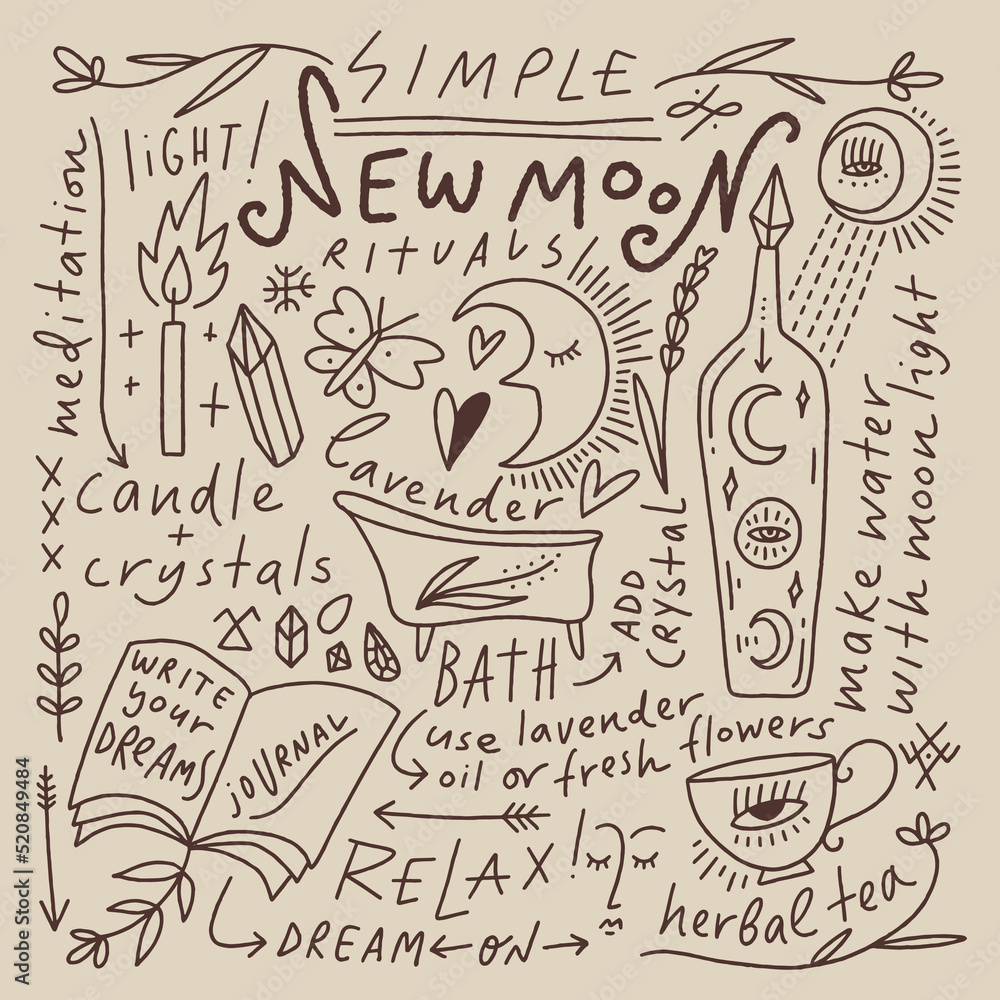 SIMPLE
NEW MOON
RITUALS
LiGHT!
meditation
candle
+
crystals
lavender
BATH
ADD
crystal
use lavender
oil or fresh flowers
make water
with moon light
WRITE
your
DREAMS
JOURNAL
RELAX!
DREAM ON
herbal tea
Adobe Stock
Adobe Stock | #520849484